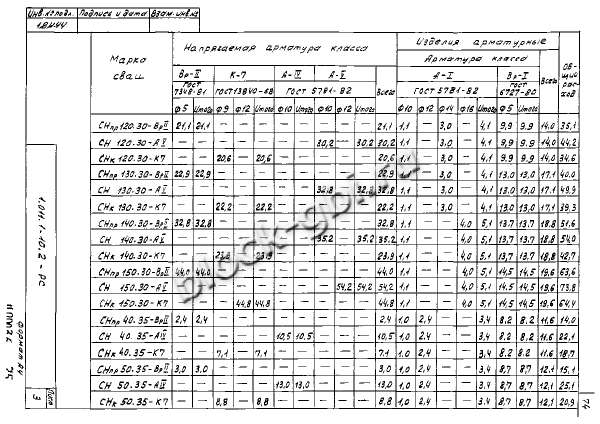 Инв. № подл. Подпись и дата Взам. инв. №
Марка сваи
Напрягаемая арматура класса
Изделия арматурные
Арматура класса
Общий расход
Вр-II К-7 А-IV А-V Всего А-I Вр-I Всего
ГОСТ 7348-81 ГОСТ 13840-68 ГОСТ 5781-82 ГОСТ 5781-82 ГОСТ 6727-80
Ф5 Итого Ф9 Ф12 Итого Ф10 Итого Ф10 Ф12 Итого Ф10 Ф12 Ф14 Ф16 Итого Ф5 Итого
СНпр 120.30-ВрII 21,1 21,1 — — — — — — — — 21,1 1,1 — 3,0 — 4,1 9,9 9,9 14,0 35,1
СН 120.30-АV — — — — — — — — 30,2 — 30,2 30,2 1,1 — 3,0 — 4,1 9,9 9,9 14,0 44,2
СНк 120.30-К7 — — 20,6 — 20,6 — — — — — 20,6 1,1 — 3,0 — 4,1 9,9 9,9 14,0 34,6
СНпр 130.30-ВрII 22,9 22,9 — — — — — — — — 22,9 1,1 — 3,0 — 4,1 13,0 13,0 17,1 40,0
СН 130.30-АV — — — — — — — 32,8 — 32,8 32,8 1,1 — 3,0 — 4,1 13,0 13,0 17,1 49,9
СНк 130.30-К7 — — 22,2 — 22,2 — — — — — 22,2 1,1 — 3,0 — 4,1 13,0 13,0 17,1 39,3
СНпр 140.30-ВрII 32,8 32,8 — — — — — — — — 32,8 1,1 — — 4,0 5,1 13,7 13,7 18,8 51,6
СН 140.30-АV — — — — — — — 35,2 — 35,2 35,2 1,1 — — 4,0 5,1 13,7 13,7 18,8 54,0
СНк 140.30-К7 — — 23,9 — 23,9 — — — — — 23,9 1,1 — — 4,0 5,1 13,7 13,7 18,8 42,7
СНпр 150.30-ВрII 44,0 44,0 — — — — — — — — 44,0 1,1 — — 4,0 5,1 14,5 14,5 19,6 63,6
СН 150.30-АV — — — — — — — — 54,2 54,2 54,2 1,1 — — 4,0 5,1 14,5 14,5 19,6 73,8
СНк 150.30-К7 — — — 44,8 44,8 — — — — — 44,8 1,1 — — 4,0 5,1 14,5 14,5 19,6 64,4
СНпр 40.35-ВрII 2,4 2,4 — — — — — — — — 2,4 1,0 2,4 — — 3,4 8,2 8,2 11,6 14,0
СН 40.35-АIV — — — — — 10,5 10,5 — — — 10,5 1,0 2,4 — — 3,4 8,2 8,2 11,6 22,1
СНк 40.35-К7 — — 7,1 — 7,1 — — — — — 7,1 1,0 2,4 — — 3,4 8,2 8,2 11,6 18,7
СНпр 50.35-ВрII 3,0 3,0 — — — — — — — — 3,0 1,0 2,4 — — 3,4 8,7 8,7 12,1 15,1
СН 50.35-АIV — — — — — 13,0 13,0 — — — 13,0 1,0 2,4 — — 3,4 8,7 8,7 12,1 25,1
СНк 50.35-К7 — — 8,8 — 8,8 — — — — — 8,8 1,0 2,4 — — 3,4 8,7 8,7 12,1 20,9
1.011.1-10.2 - РС
Лист
3
74
block-gbi.ru